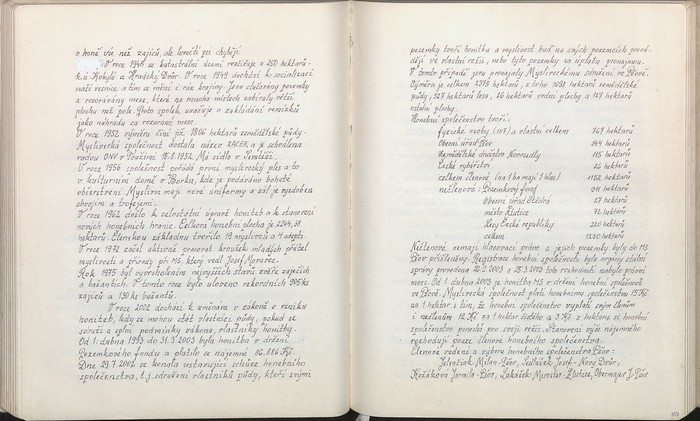 o hodně víc než zajíců, ale lovečtí psi chybějí.
V roce 1948 se katastrální území rozšiřuje o 250 hektarů
k.ú. Kobylé a Hradský Dvůr. V roce 1949 dochází k socializaci
naší vesnice a tím se mění i ráz krajiny. Jsou slučovány pozemky
a rozorávány meze, které na mnoha místech zabíraly větší
plochy než pole. Proto spolek uvažuje o zakládání remízků
jako náhradu za rozorané meze.
V roce 1952 výměra činí již 1806 hektarů zemědělské půdy.
Myslivecká společnost dostala název ZAČEK a je schválena
radou ONV v 18.1.1954. Má sídlo v
V roce 1956 společnost pořádá první myslivecký ples a to
v kulturním domě v Borku, kde je podáváno bohaté
občerstvení. Myslivci mají nové uniformy a sál je vyzdoben
zbrojím a trofejemi.
V roce 1962 došlo k celostátní úpravě honiteb a k stanovení
nových honebních hranic. Celková honební plocha je 2244,51
hektarů. Členskou základnu tvořilo 19 myslivců a 4 adepti.
V roce 1971 začal aktivně pracovat kroužek mladých přátel
myslivosti a přírody při MS, který vedl Josef Moravec.
Rok 1975 byl vyvrcholením nejvyšších stavů zvěře zaječích
a bažantích. V tomto roce bylo uloveno rekordních 305ks
zajíců a 130 ks bažantů.
V roce 2002 dochází k změnám v zákoně o vzniku
honiteb, kdy se mohou stát vlastníci půdy, pokud se
sdruží a splní podmínky zákona, vlastníky honitby.
Od 1. dubna 1993 do 31.3.2003 byla honitba v držení
Pozemkového fondu a platilo se nájemné 86.886 Kč.
Dne 29.7.2002 se konala ustavující schůze honebního
společenstva, t.j. sdružení vlastníků půdy, kteří svými
pozemky tvoří honitbu a myslivost buď na svých pozemcích prová-
dějí ve vlastní režii, nebo tyto pozemky za úplatu pronajmou.
V tomto případě jsou pronajaty Mysliveckému sdružení ve Pšově.
Výměra je celkem 2378 hektarů, z toho 1698 hektarů zemědělské
půdy, 527 hektarů lesa, 26 hektarů vodní plochy a 127 hektarů
ostatní plochy.
Honební společenstvo tvoří:
fyzické osoby (107) a vlastní celkem 767 hektarů
Obecní úřad Pšov 244 hektarů
Zemědělské družstvo Novosedly 115 hektarů
České rybářství 26 hektarů
celkem členové (na 1 ha mají 1 hlas) 1152 hektarů
nečlenové: Pozemkový fond 811 hektarů
Obecní úřad 27 hektarů
město Žlutice 72 hektarů
Lesy České republiky 320 hektarů
celkem 1230 hektarů
Nečlenové nemají hlasovací právo a jejich pozemky byly do HS
Pšov přičleněny. Registrace honebního společenství byla orgány státní
správy provedena 20.2.2003 a 28.3.2003 toto rozhodnutí nabylo právní
moci. Od 1. dubna 2003 je honitba HS v držení honební společnosti
ve Pšově. Myslivecká společnost platí honebnímu společenstvu 15 Kč
za 1 hektar s tím, že honební společenstvo vyplatí svým členům
i nečlenům 12 Kč za 1 hektar čistého a 3 Kč z hektaru si honební
společenstvo ponechá pro svoji režii. Stanovení výše nájemného
rozhodují pouze členové honebního společenstva.
Členové vedení a výboru honebního společenstva Pšov:
Jelločiak Milan-Pšov, Sedláček Josef-Nový Dvůr,
Kožáková Jarmila-Pšov, Lukáček Miroslav-Žlutice, Obermajer J.-Pšov